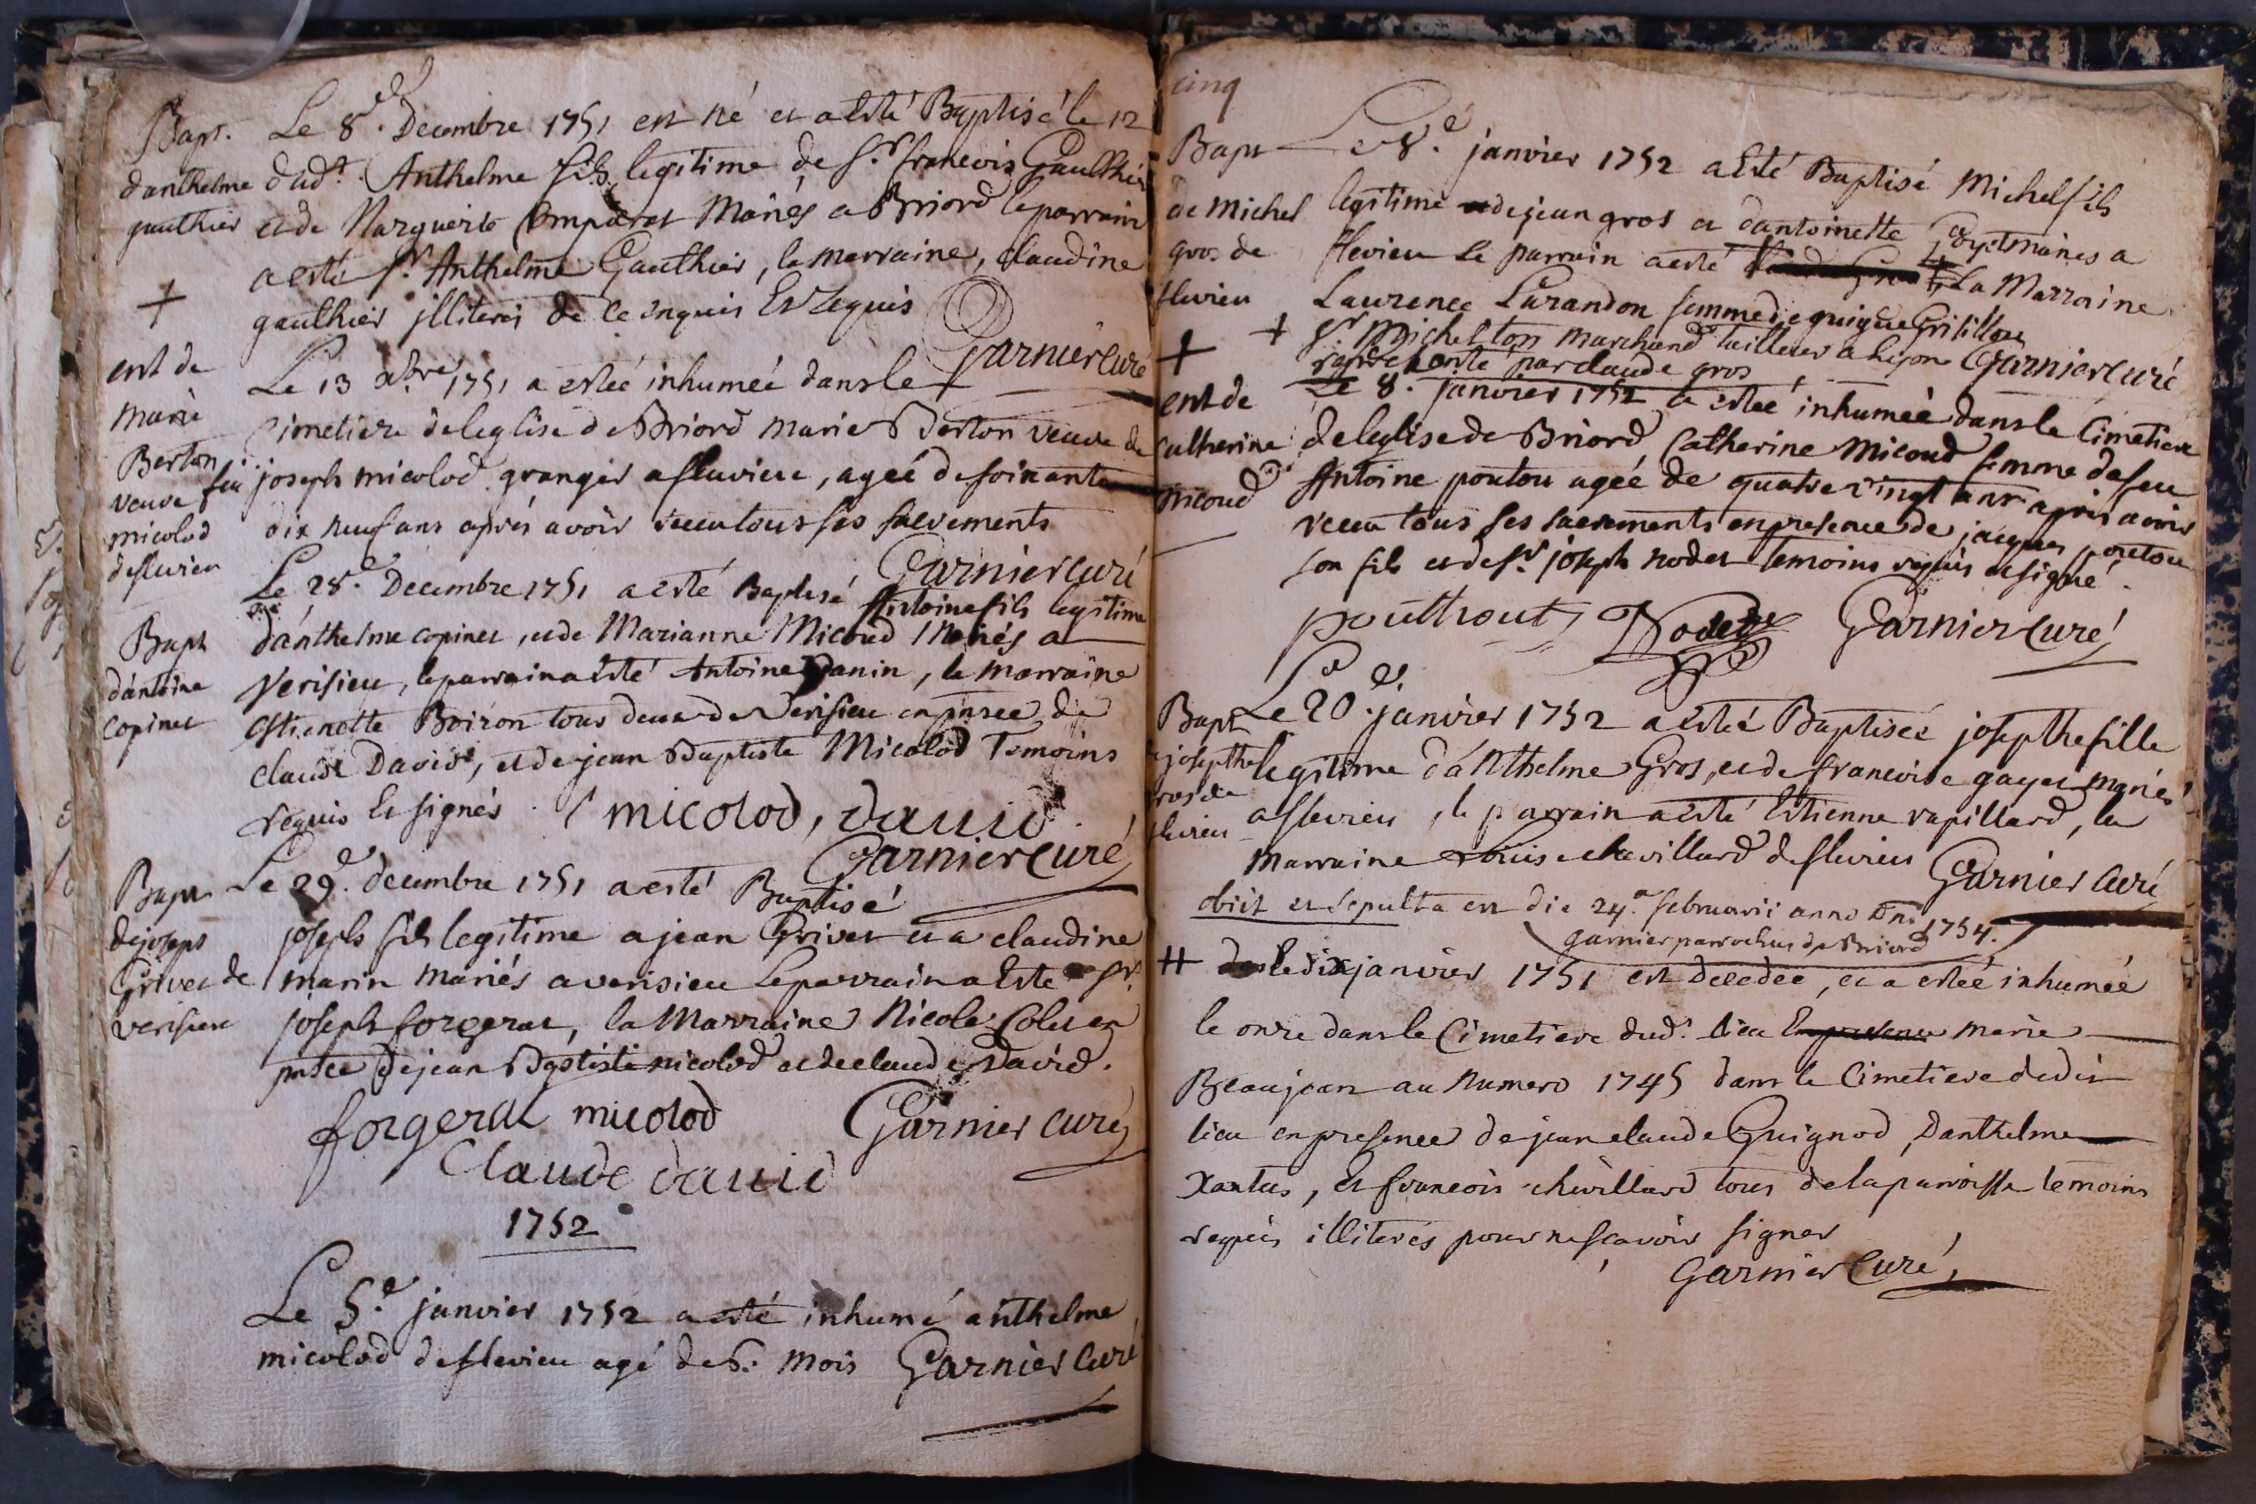 Bapt.
danthelme
gauthier
Le 8.e Decembre 1751 est né et a esté Baptisé le 12
dud.t Anthelme fils legitime de s.r francois Gaulthier
et de Marguerite Comparat Mariés a Briord le parrain
a esté s.r Anthelme Gauthier, la marraine, claudine
gauthier illiterés de ce enquis Et requis
Garnier Curé
ent de
marie
Berton
veuve feu
micolod
deflevieu
Le 13 xbre 1751 a estéé inhumeé dans le
Cimetiere deleglise de Briord marie Berton veuve de
joseph micolod granger aflevieu, ageé de soixante
dix neuf ans aprés avoir receu tous ses sacrements
Garnier curé
Bapt
dantoine
copinet
Le 28.e Decembre 1751 a esté Baptisé Antoine fils legitime
danthelme copinet, et de Marianne Micoud Mariés a
Verisieu, le parrain a esté Antoine Janin, la marraine
Estienette Boiron tous deux de Verisieu en pnsce de
claude David, et de jean Baptiste Micolod Temoins
requis Et signés. micolod, david
Garnier Curé
Bapt
de joseph
Grivet de
verisieu
Le 29.e decembre 1751 a esté Baptisé
joseph fils legitime a jean Grivet et a claudine
marin mariés a verisieu Le parrain a Esté sr.
joseph forgerat, la Marraine Nicole Colet en
pnsce de jean Baptiste micolod et de claude David.
forgerat micolod Garnier curé
Claude david
1752
Le 5.e janvier 1752 a esté inhumé anthelme
micolod deflevieu agé de 6. mois Garnier Curé
cinq
Bapt
de Michel
gros de
flevieu
Le 8.e janvier 1752 a Esté Baptisé Michel fils
legitime de jean gros et dantoinette mariés a
flevieu Le parrain a esté La Marraine
Laurence Larandon femme de guigue Grisillon
+ sr Michel ton marchand tailleur a Garnier Curé
representé par claude gros
ent de
catherine
micoud
Le 8. janvier 1752 a estéé inhumeé dans le Cimetiere
deleglise de Briord Catherine Micoud femme de feu
Antoine poutou ageé de quatre vingt ans aprés avoir
receu tous ses sacrements en presence de jacques poutou
son fils et de sr. joseph nodet temoins requis et signé.
pouthout Nodet Garnier Curé
Bapt
de josepthe
gros de
flevieu
Le 20.e janvier 1752 a estéé Baptiseé josepthe fille
legitime d'aNthelme Gros, et de francoise gayet mariés
a flevieu, le parrain a esté Estienne rapillard, la
marraine Louise chevillard de flevieu Garnier Curé
obiit et sepulta est die 24.a februarii anno Dni 1754.
garnier parrochus de Briord
# le dix janvier 1751 est decedeé, et a estéé inhumeé
le onze dans le Cimetiere dud.t lieu marie
Beaujean au Numero 1745 dans le Cimetiere dedit
lieu en presence de jean claude Guignod, Danthelme
Xantus, Et francois chevillard tous de la parroisse temoins
requis illiterés pour ne scavoir signer
Garnier Curé,